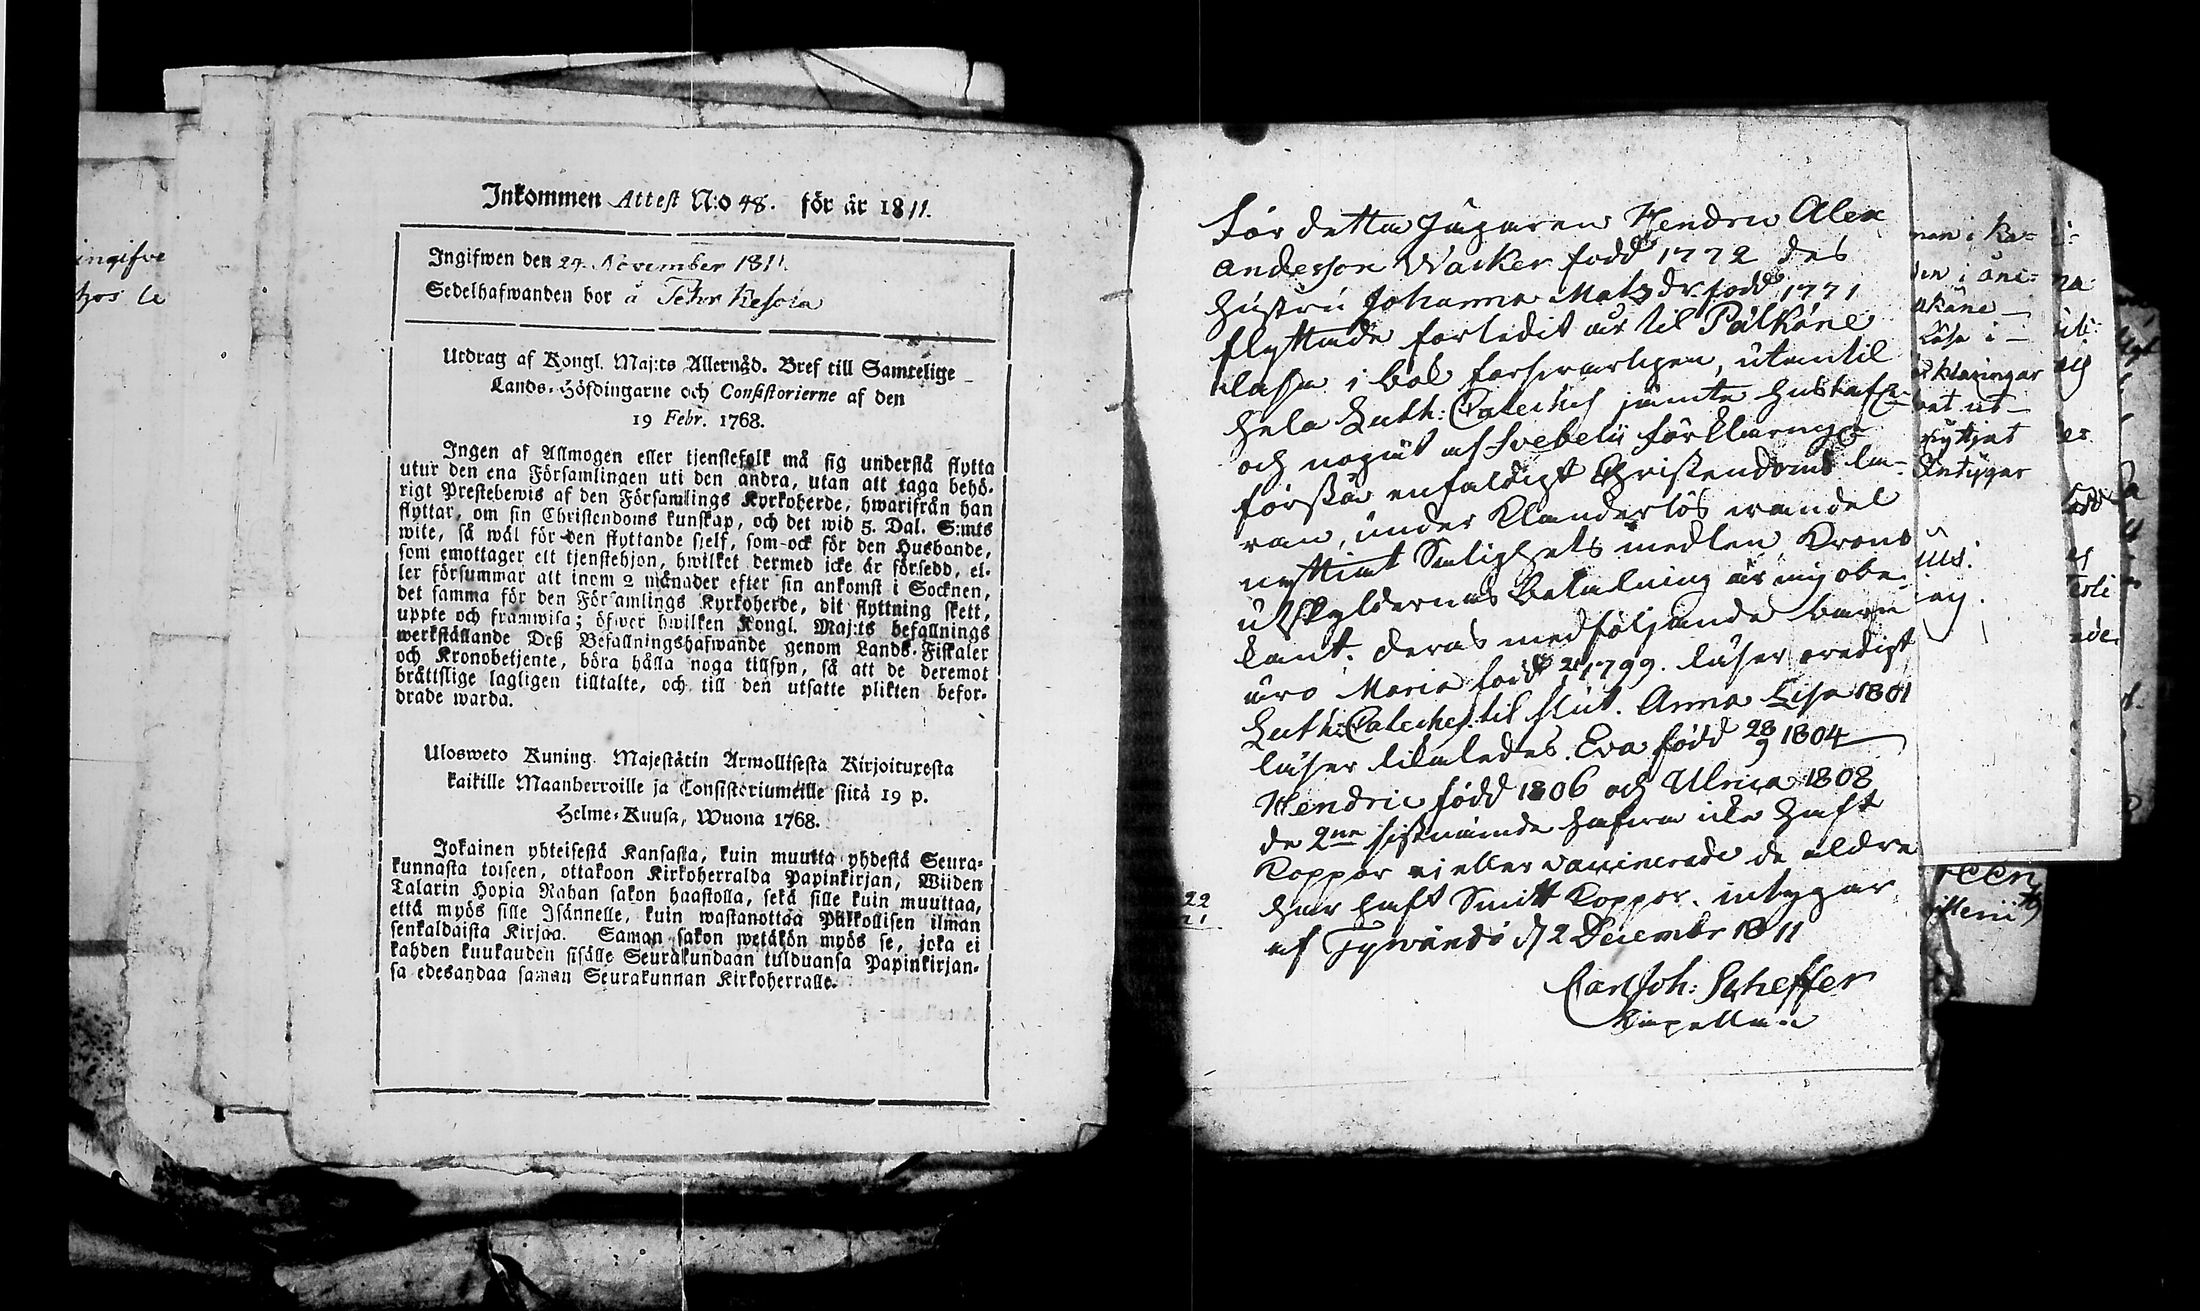 Inkommen Attest N:o 48. för år 1811.
Ingifwen den 27. November 1811.
Sedelhafwanden bor å
Utdrag af Kongl. Maj:ts Allernåd. Bref till Samtelige
Lands-Höfdingarne och Consistorierne af den
19 Febr. 1768.
Ingen af Allmogen eller tjenstefolk må sig understå flytta
utur den ena Församlingen uti den andra, utan att taga behö-
rigt Prestebewis af den Församlings Kyrkoherde, hwarifrån han
flyttar, om sin Christendoms kunskap, och det wid 5. Dal. S:mts
wite, så wäl för den flyttande sjelf, som ock för den Husbonde,
som emottager ett tjenstehjon, hwilket dermed icke är försedd, el-
ler försummar att inom 2 månader efter sin ankomst i Socknen,
det samma för den Församlings Kyrkoherde, dit flyttning skett,
uppte och framwisa; öfwer hwilken Kongl. Maj:ts befallnings
werkställande Deß Befallningshafwande genom Lands-Fiskaler
och Kronobetjente, böra hålla noga tillsyn, så att de deremot
bråttslige lagligen tilltalte, och till den utsatte plikten befor-
drade warda.
Ulosweto Kuning. Majestätin Armollisesta Kirjoituxesta
kaikille Maanherroille ja Consistoriumeille siitä 19 p.
Helme-Kuusa, Wuona 1768.
Jokainen yhteisestä Kansasta, kuin muutta yhdestä Seura-
kunnasta toiseen, ottakoon Kirkoherralda Papinkirjan, Wiiden
Talarin Hopia Rahan sakon haastolla, sekä sille kuin muuttaa,
että myös sille Isännelle, kuin wastanottaa Piikkollisen ilman
senkaldaista Kirjaa. Saman sakon wetäkön myös se, joka ei
kahden kuukauden sisälle Seurakundaan tulduansa Papinkirjan-
sa edesandaa saman Seurakunnan Kirkoherralle.
För detta Jägaren Hendric Alex
andersson Wacker född 1772 des
hustru Johanna Matsdr. född 1771
flyttade förledit år til Pälkäne
läsa i bok försvarligen, utantil
hela Luth: Cateches jämte hustafl.
och något af Svebelii förklaring
förstå enfaldigt Christendoms lä-
ran, under Klanderlös wandel
nyttiat Salighets medlen Krono
utskyldernas betalning är mig obe-
kant. deras medföljande barn
äro Maria född 1799. läser oredigt
Luth: Cateches. til slut. Anna Lisa 1801
läser likaledes. Eva född 28/9 1804
Hendric född 1806 och Ulrica 1808
de 2ne sistnämde hafwa icke haft
Koppor ei eller vaccinerade de äldre
har haft Smitt Koppor. intygar
af Tyrwändö d 2 Decembr 1811
Carl Joh: Scheffer
Kapellan